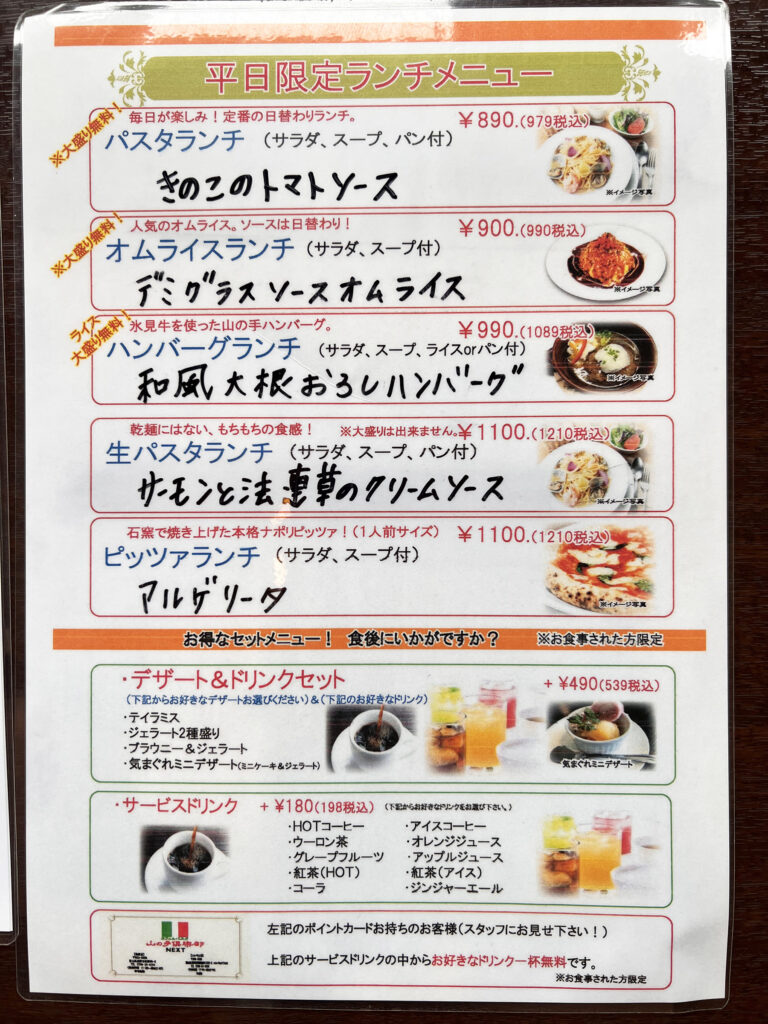 平日限定ランチメニュー
※大盛り無料！
毎日が楽しみ！定番の日替わりランチ。
￥890.(979税込)
パスタランチ （サラダ、スープ、パン付）
きのこのトマトソース
※イメージ写真
※大盛り無料！
人気のオムライス。ソースは日替わり！
￥900.(990税込)
オムライスランチ （サラダ、スープ付）
デミグラスソースオムライス
※イメージ写真
ライス
大盛り無料！
氷見牛を使った山の手ハンバーグ。
￥990.(1089税込)
ハンバーグランチ （サラダ、スープ、ライスorパン付）
和風大根おろしハンバーグ
※イメージ写真
乾麺にはない、もちもちの食感！ ※大盛りは出来ません。
￥1100.(1210税込)
生パスタランチ （サラダ、スープ、パン付）
サーモンと法蓮草のクリームソース
※イメージ写真
石窯で焼き上げた本格ナポリピッツァ！（1人前サイズ）
￥1100.(1210税込)
ピッツァランチ （サラダ、スープ付）
マルゲリータ
※イメージ写真
お得なセットメニュー！ 食後にいかがですか？ ※お食事された方限定
・デザート＆ドリンクセット
+ ¥490(539税込)
（下記からお好きなデザートお選びください）＆（下記のお好きなドリンク）
・テイラミス
・ジェラート2種盛り
・ブラウニー＆ジェラート
・気まぐれミニデザート(ミニケーキ＆ジェラート)
気まぐれミニデザート
・サービスドリンク + ¥180(198税込) （下記からお好きなドリンクをお選び下さい。）
・HOTコーヒー ・アイスコーヒー
・ウーロン茶 ・オレンジジュース
・グレープフルーツ ・アップルジュース
・紅茶（HOT） ・紅茶（アイス）
・コーラ ・ジンジャーエール
山の手倶楽部
NEXT
左記のポイントカードお持ちのお客様（スタッフにお見せ下さい！）
上記のサービスドリンクの中からお好きなドリンク一杯無料です。
※お食事された方限定